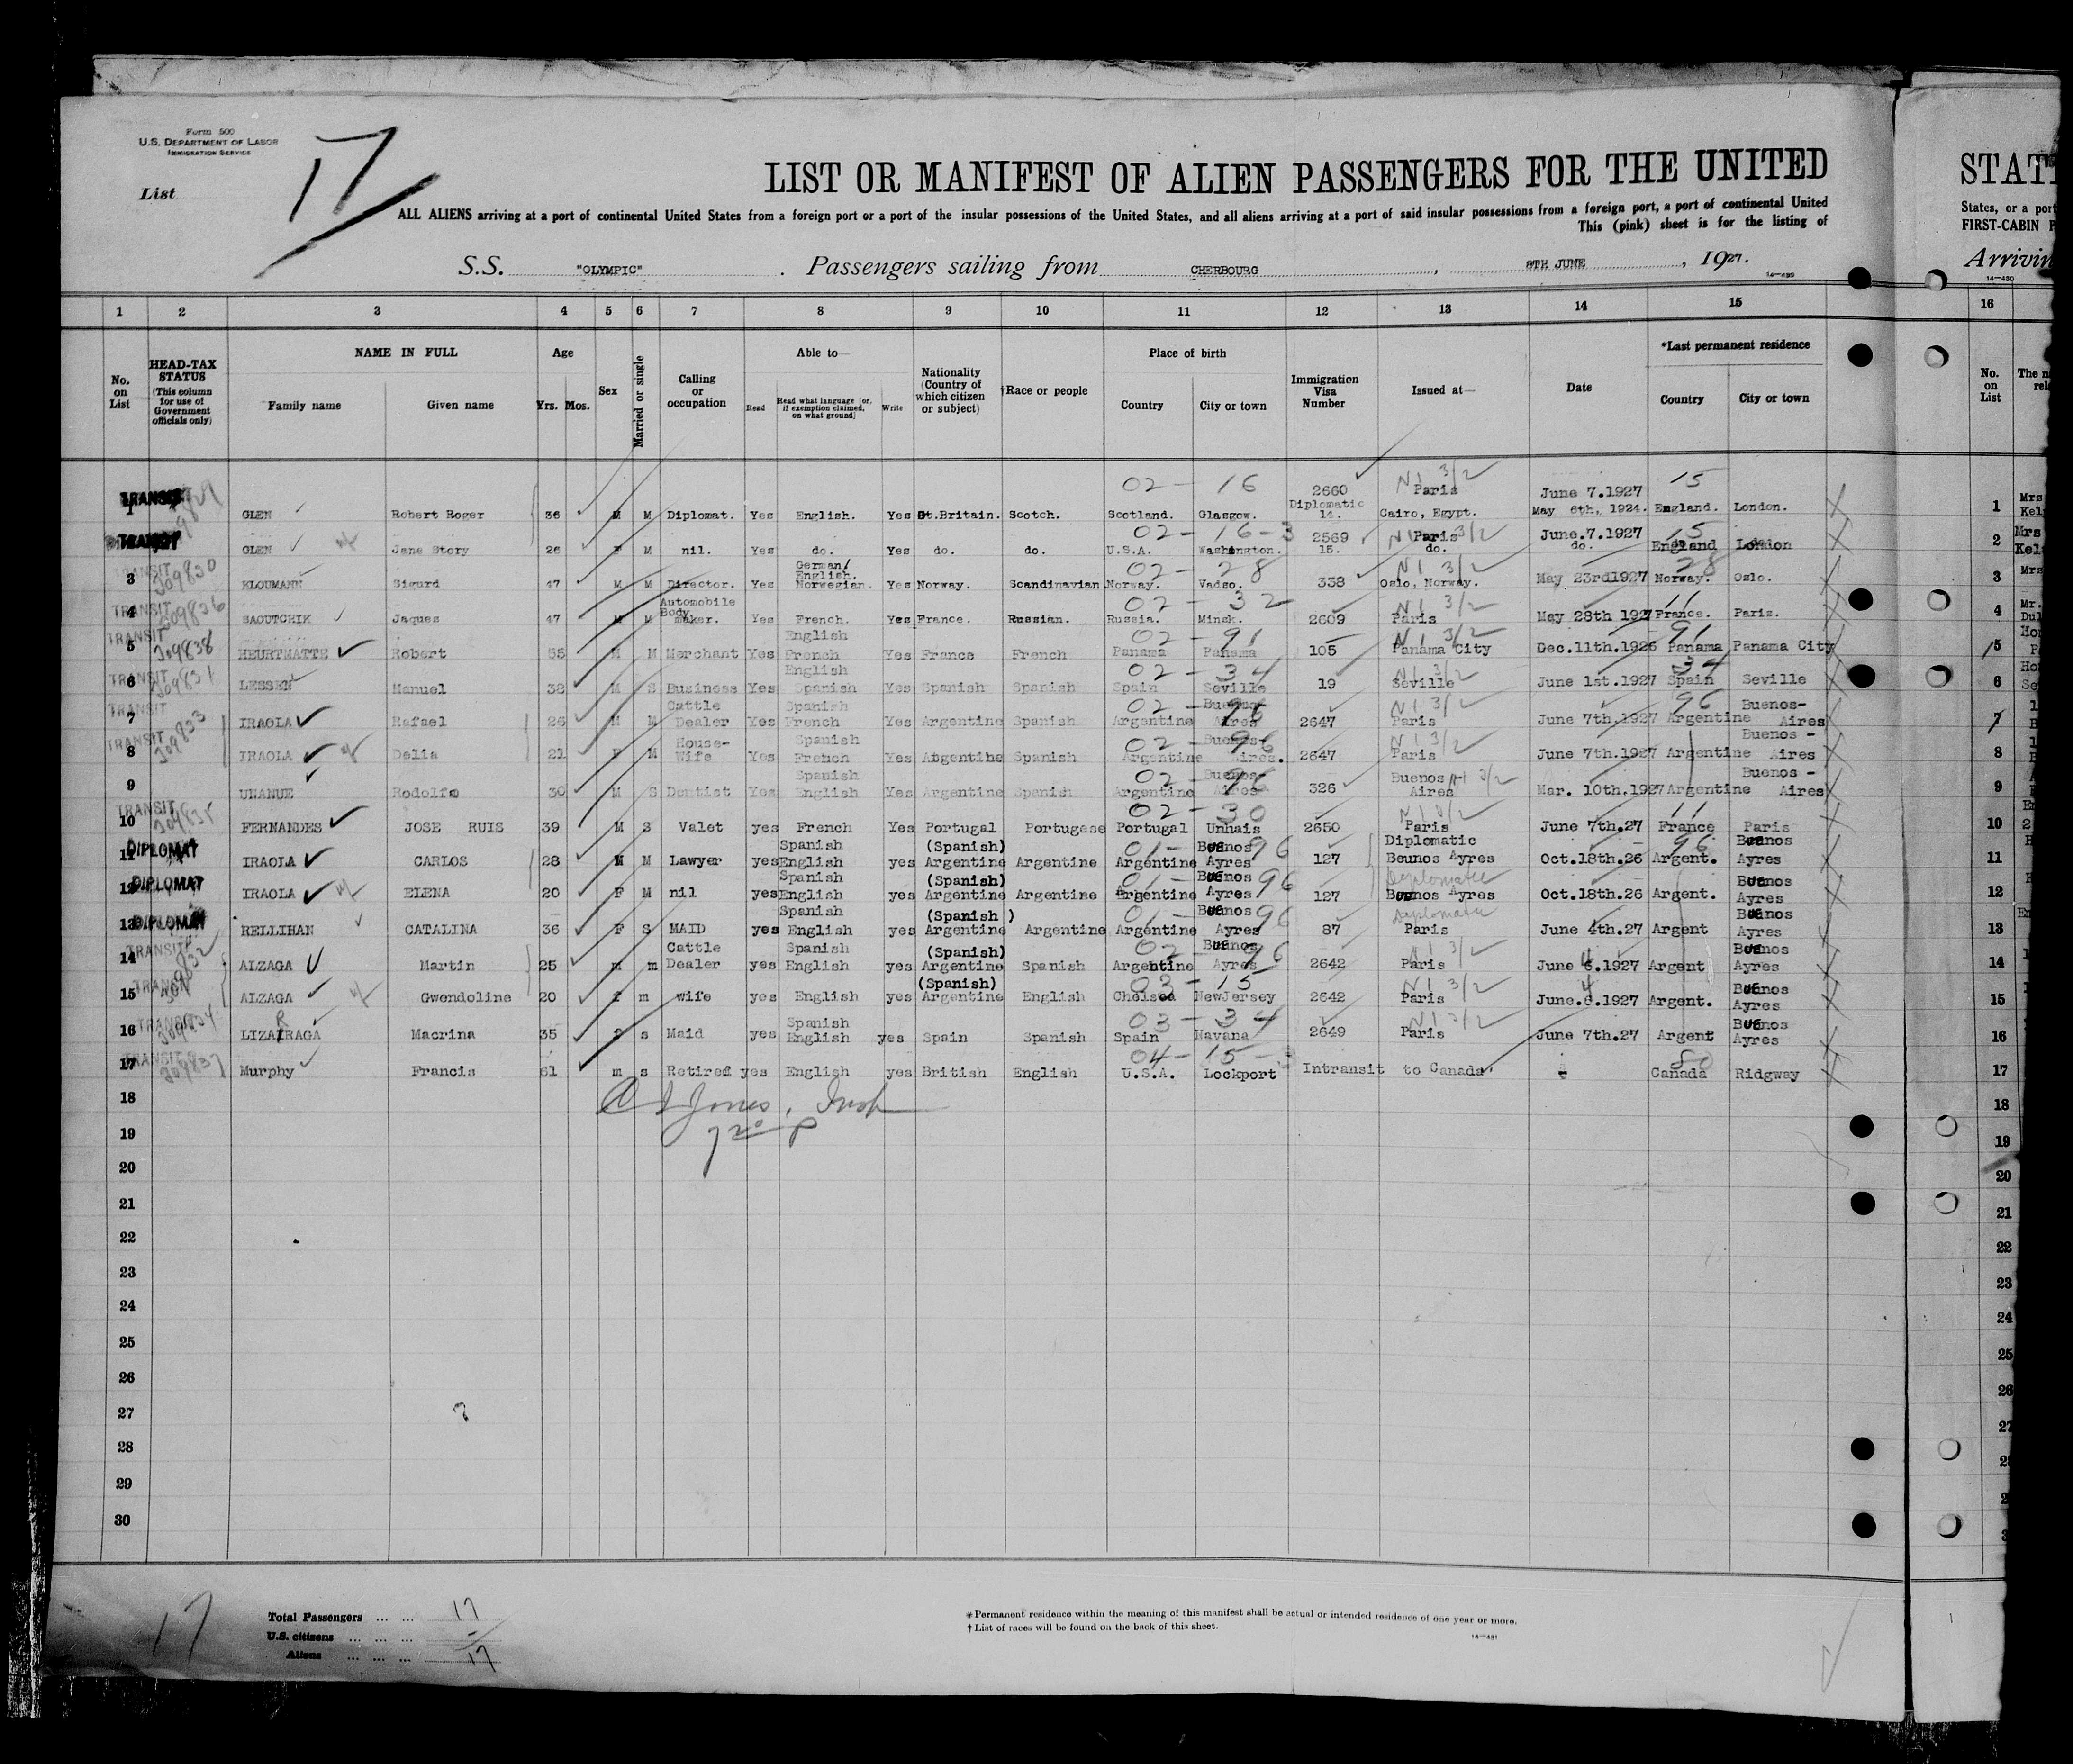 Form 500
U.S. DEPARTMENT OF LABOR
IMMIGRATION SERVICE
List 17
LIST OR MANIFEST OF ALIEN PASSENGERS FOR THE UNITED
ALL ALIENS arriving at a port of continental United States from a foreign port or a port of the insular possessions of the United States, and all aliens arriving at a port of said insular possessions from a foreign port, a port of continental United
This (pink) sheet is for the listing of
S.S. "OLYMPIC". Passengers sailing from CHERBOURG, 8TH JUNE, 1927.
14—430
STAT
States, or a port
FIRST-CABIN P
Arrivin
14—430
1 2 3 4 5 6 7 8 9 10 11 12 13 14 15 16
No. on List
HEAD-TAX STATUS (This column for use of Government officials only)
NAME IN FULL
Family name Given name
Age
Yrs. Mos.
Sex
Married or single
Calling or occupation
Able to—
Read Read what language [or, if exemption claimed, on what ground] Write
Nationality (Country of which citizen or subject)
†Race or people
Place of birth
Country City or town
Immigration Visa Number
Issued at—
Date
*Last permanent residence
Country City or town
No. on List
02 - 16 2660 N 1 3/2 Paris June 7.1927 15
TRANSIT 1 GLEN Robert Roger 36 M M Diplomat. Yes English. Yes Gt.Britain. Scotch. Scotland. Glasgow. Diplomatic 14. Cairo, Egypt. May 6th, 1924. England. London. 1 Mrs
02 - 16 - 3 2569 Paris 3/2 June.7.1927 15
TRANSIT 2 GLEN Jane Story 26 F M nil. Yes do. Yes do. do. U.S.A. Washington. 15. do. do. England London 2 Mrs
German/ English. 02 - 28 N 1 3/2 28
TRANSIT 309830 3 KLOUMANN Sigurd 47 M M Director. Yes Norwegian. Yes Norway. Scandinavian Norway. Vadso. 338 Oslo, Norway. May 23rd1927 Norway. Oslo. 3 Mrs
Automobile Body 02 - 32 N 1 3/2 11
TRANSIT 309836 4 SAOUTCHIK Jaques 47 M M maker. Yes French. Yes France. Russian. Russia. Minsk. 2609 Paris May 28th 1927 France. Paris. 4 Mr.
English 02 - 91 N 1 3/2 91
TRANSIT 309838 5 HEURTMATTE Robert 55 M M Merchant Yes French Yes France French Panama Panama 105 Panama City Dec.11th.1926 Panama Panama City 5
English 02 - 34 N 1 3/2 34
TRANSIT 309831 6 LESSEN Manuel 32 M S Business Yes Spanish Yes Spanish Spanish Spain Seville 19 Seville June 1st.1927 Spain Seville 6
Cattle Spanish 02 - 96 Buenos N 1 3/2 96 Buenos-
TRANSIT 309833 7 IRAOLA Rafael 26 M M Dealer Yes French Yes Argentine Spanish Argentine Aires 2647 Paris June 7th.1927 Argentine Aires 7
House- Spanish 02 - 96 Buenos- N 1 3/2 Buenos -
TRANSIT 8 IRAOLA Delia 21 F M Wife Yes French Yes Argentine Spanish Argentine Aires. 2647 Paris June 7th.1927 Argentine Aires 8
Spanish 02 - 96 Buenos Buenos 3/2 Buenos -
9 UNANUE Rodolfo 30 M S Dentist Yes English Yes Argentine Spanish Argentine Aires 326 Aires Mar. 10th.1927 Argentine Aires 9
02 - 30 N 1 3/2 11
TRANSIT 309835 10 FERNANDES JOSE RUIS 39 M S Valet yes French Yes Portugal Portugese Portugal Unhais 2650 Paris June 7th.27 France Paris 10
Spanish (Spanish) 01 - 96 Buenos Diplomatic 96 Buenos
DIPLOMAT 11 IRAOLA CARLOS 28 M M Lawyer yes English yes Argentine Argentine Argentine Ayres 127 Beunos Ayres Oct.18th.26 Argent. Ayres 11
Spanish (Spanish) 01 - 96 Buenos Diplomatic Buenos
DIPLOMAT 12 IRAOLA ELENA 20 F M nil yes English yes Argentine Argentine Argentine Ayres 127 Buenos Ayres Oct.18th.26 Argent. Ayres 12
Spanish (Spanish ) 01 - 96 Buenos Diplomatic Buenos
DIPLOMAT 13 RELLIHAN CATALINA 36 F S MAID yes English yes Argentine Argentine Argentine Ayres 87 Paris June 4th.27 Argent Ayres 13
Cattle Spanish (Spanish) 02 - 96 Buenos N 1 3/2 Buenos
TRANSIT 309832 14 ALZAGA Martin 25 m m Dealer yes English yes Argentine Spanish Argentine Ayres 2642 Paris June 4.1927 Argent Ayres 14
(Spanish) 03 - 15 N 1 3/2 Buenos
TRANSIT 15 ALZAGA Gwendoline 20 f m wife yes English yes Argentine English Chelsea NewJersey 2642 Paris June.4.1927 Argent. Ayres 15
Spanish 03 - 34 N 1 3/2 Buenos
TRANSIT 309834 16 LIZARRAGA Macrina 35 f s Maid yes English yes Spain Spanish Spain Navana 2649 Paris June 7th.27 Argent Ayres 16
04 - 15 - 3 80
TRANSIT 309837 17 Murphy Francis 61 m s Retired yes English yes British English U.S.A. Lockport Intransit to Canada Canada Ridgway 17
18 Jones, Insp 18
19 19
20 20
21 21
22 22
23 23
24 24
25 25
26 26
27 27
28
29
30
17
Total Passengers ... ... 17
U.S. citizens ... ... ... -
Aliens ... ... ... 17
*Permanent residence within the meaning of this manifest shall be actual or intended residence of one year or more.
†List of races will be found on the back of this sheet.
14—431